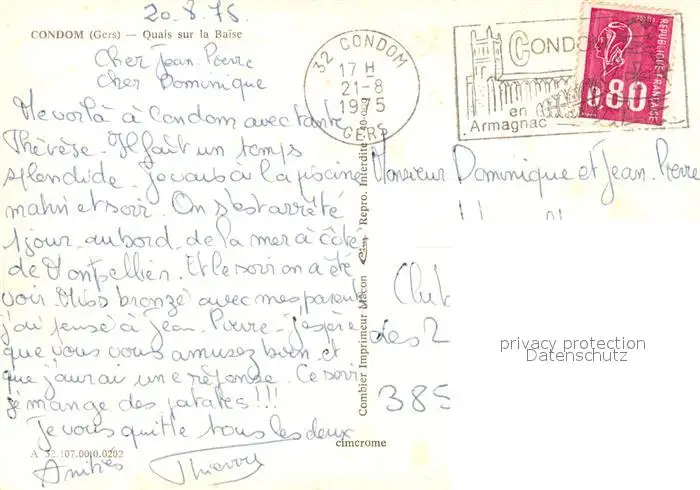 20.8.75.
CONDOM (Gers) — Quais sur la Baïse
Cher Jean Pierre
cher Dominique
Me voilà à Condom avec tante
Thérèse. Il fait un temps
splendide. Je vais à la piscine
matin et soir. On s'est arrêté
1 jour au bord de la mer à côté
de Montpellier. Et le soir on a été
voir Miss bronzé avec mes parents
j'ai pensé à Jean. Pierre. J'espère
que vous vous amusez bien et
que j'aurai une réponse. Ce soir
je mange des patates!!!
Je vous quitte tous les deux
Amitiés Thierry
A 32.107.00.0.0202
cimcrome
Combier Imprimeur Macon Cim Repro. Interdite
32 CONDOM
17 H
21-8
1975
GERS
CONDOM
en
Armagnac
POSTES
REPUBLIQUE FRANCAISE
0,80
Monsieur Dominique et Jean. Pierre
Club
des 2
385
privacy protection
Datenschutz